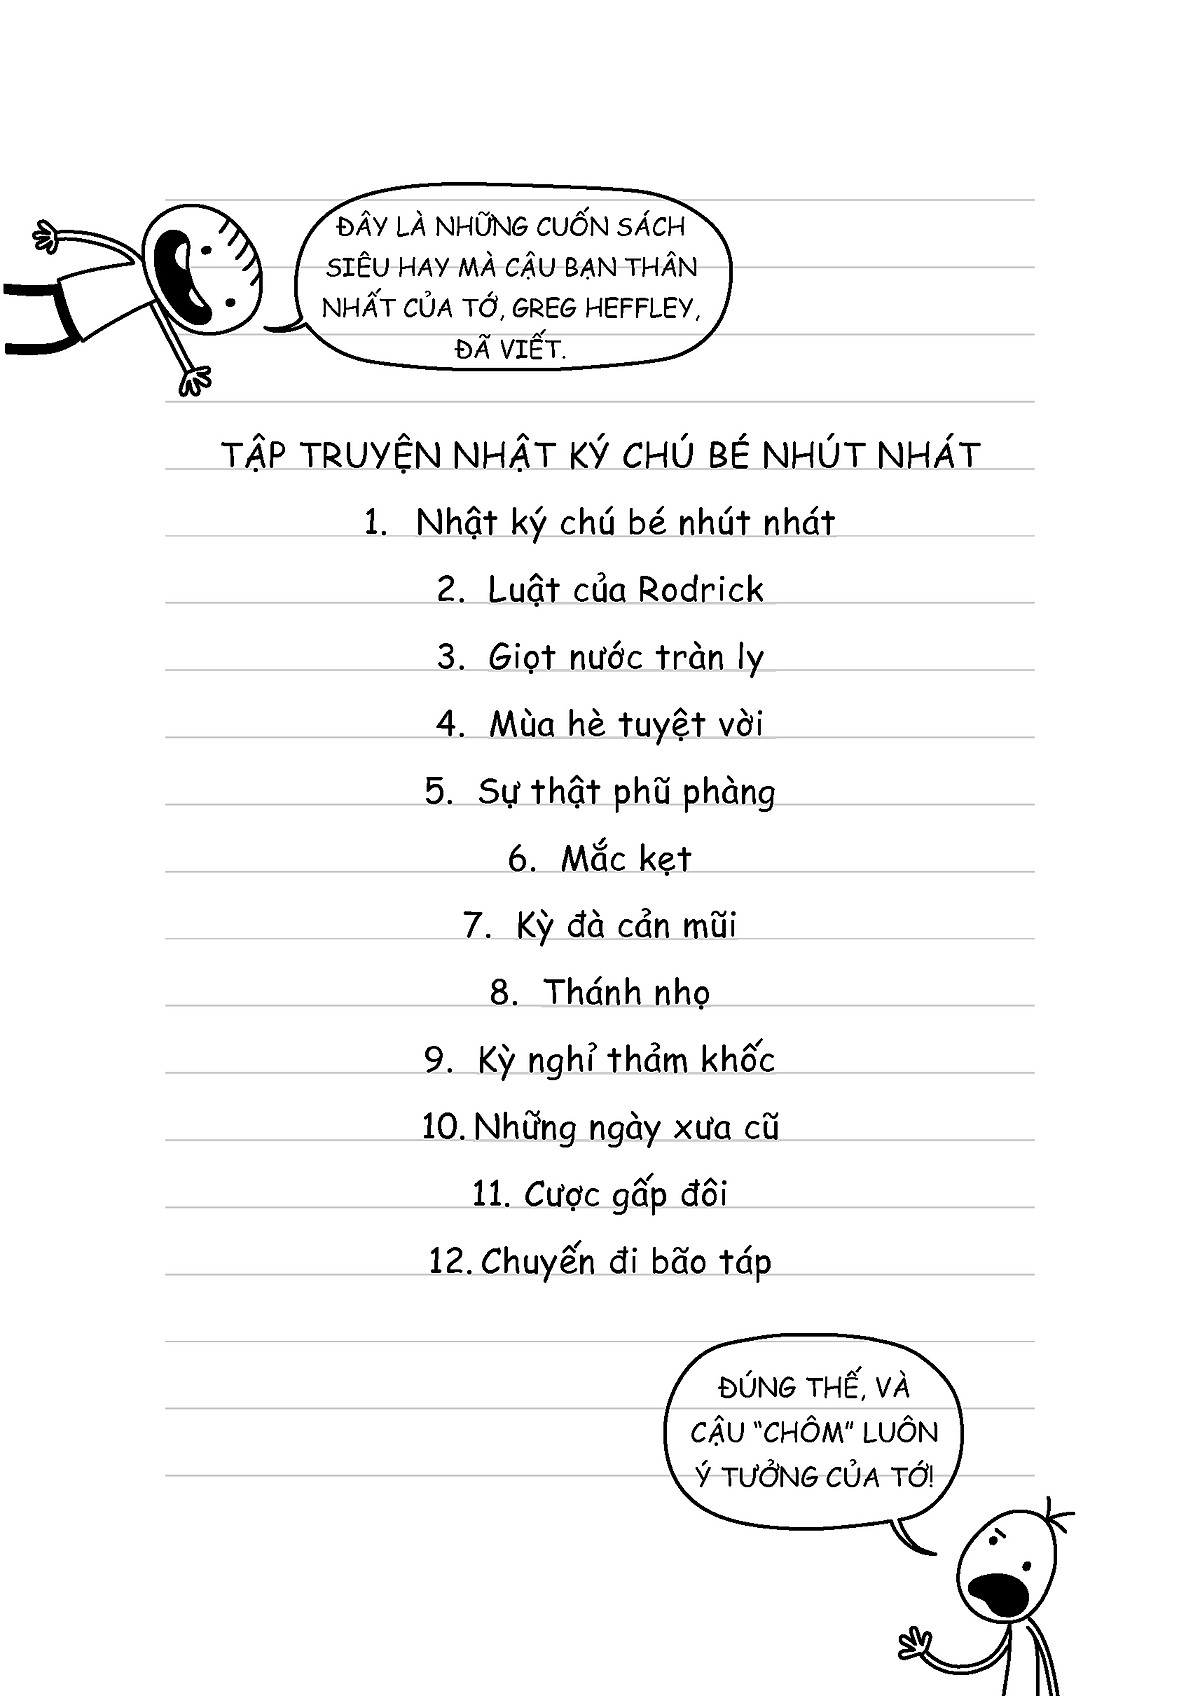 ĐÂY LÀ NHỮNG CUỐN SÁCH
SIÊU HAY MÀ CẬU BẠN THÂN
NHẤT CỦA TỚ, GREG HEFFLEY,
ĐÃ VIẾT.
TẬP TRUYỆN NHẬT KÝ CHÚ BÉ NHÚT NHÁT
1. Nhật ký chú bé nhút nhát
2. Luật của Rodrick
3. Giọt nước tràn ly
4. Mùa hè tuyệt vời
5. Sự thật phũ phàng
6. Mắc kẹt
7. Kỳ đà cản mũi
8. Thánh nhọ
9. Kỳ nghỉ thảm khốc
10. Những ngày xưa cũ
11. Cược gấp đôi
12. Chuyến đi bão táp
ĐÚNG THẾ, VÀ
CẬU "CHÔM" LUÔN
Ý TƯỞNG CỦA TỚ!